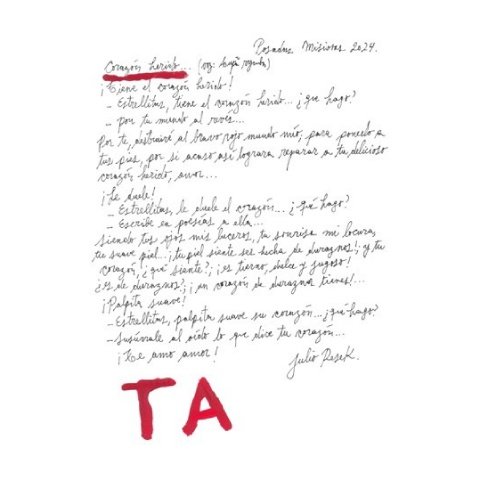 Posadas Misiones 2024.
Corazón herido... (voz: segunda)
¡Tiene el corazón herido!
- Estrellitas, tiene el corazón herido... ¿qué hago?
- pon tu mundo al revés...
Por ti, destruiré al bravo rojo mundo mío, para ponerlo a
tus pies, por si acaso así lograra reparar a tu delicioso
corazón herido, amor...
¡Le duele!
- Estrellitas, le duele el corazón... ¿qué hago?
- Escribe en poesías a ella...
siendo tus ojos mis luceros, tu sonrisa mi locura,
tu suave piel... ¡tu piel siente ser hecha de duraznos!; ¿y tu
corazón, ¿qué siente?; ¡es tierno, dulce y jugoso!
¿es de duraznos?; ¡un corazón de duraznos tienes!...
¡Palpita suave!
- Estrellitas, palpita suave su corazón... ¿qué hago?
- Susúrrale al oído lo que dice tu corazón...
¡te amo amor!
Julio Resek.
TA